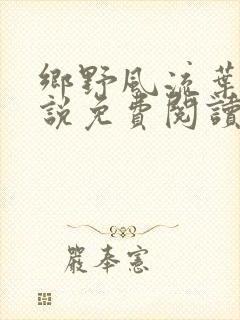 鄉野風流葉
說免費閱讀
嚴奉憲